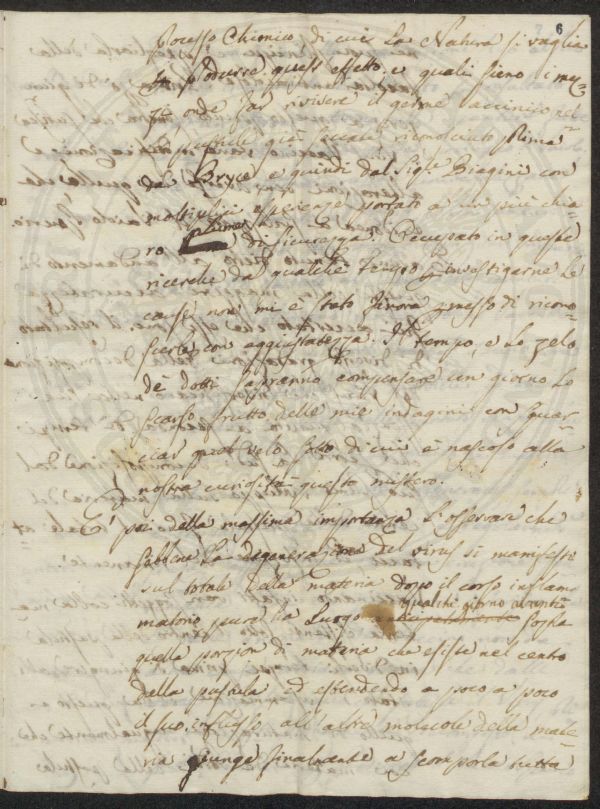 6
Processo Chimico di cui la Natura si vaglia
produrre quest'effetto, e quali sieno i mez=
zi onde far rivivere il germe vaccinico nel
le pustule già seccate riconosciuto prima
da Bryce e quindi dal Sig.e Biagini con
moltiplici esperienze portato a un più chia=
ro di sicurezza. Occupato in queste
ricerche da qualche tempo p investigarne le
cause non mi è stato finora pmesso di ricono=
scerle con aggiustatezza. Il tempo, e lo zelo
de dotti sapranno compensare un giorno lo
scarso frutto delle mie indagini con squar=
ciar quel velo sotto di cui è nascoso alla
nostra curiosità questo mistero.
E' poi della massima importanza l'osservare che
sebbene la degenerazione del virus si manifesti
sul totale della materia doppo il corso inflam=
matorio, pure ha luogo qualche giorno avanti sopra
quella porzion di materia che esiste nel centro
della pustula ed estendendo a poco a poco
il suo influsso all'altre molecole della mate=
ria giunge finalmente a scomporla tutta